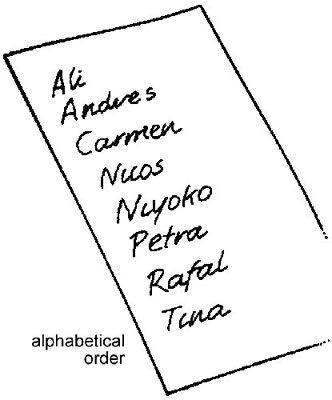 Ali
Andres
Carmen
Nicos
Niyoko
Petra
Rafal
Tina
alphabetical
order